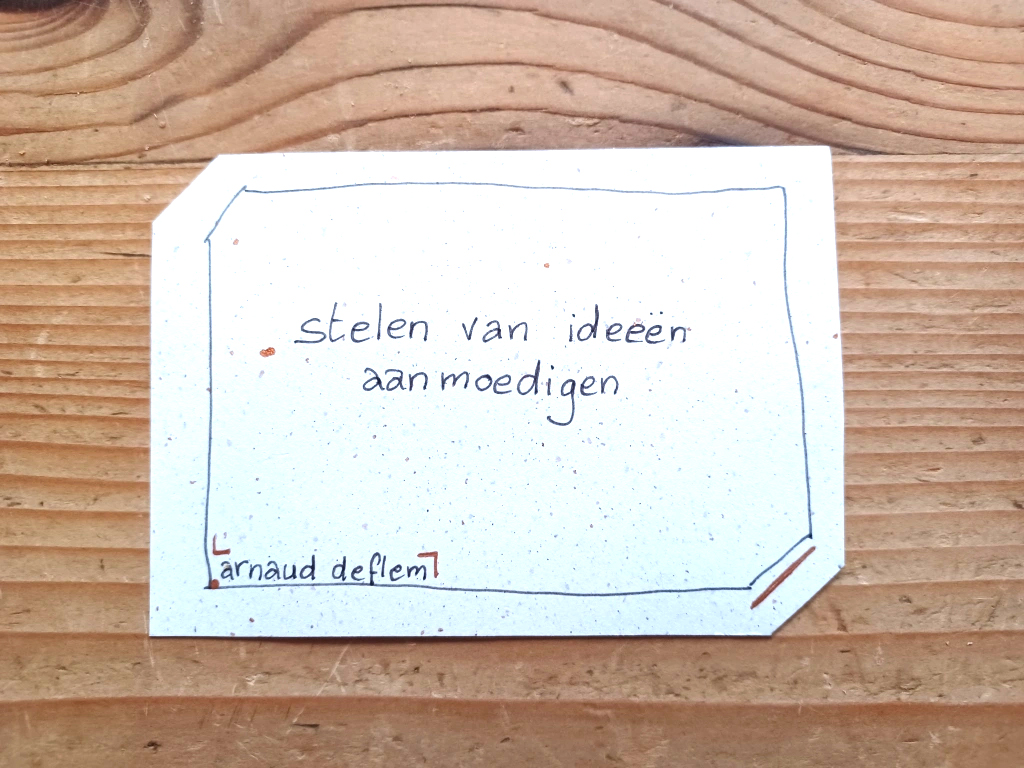 stelen van ideeën
aanmoedigen
arnaud deflem